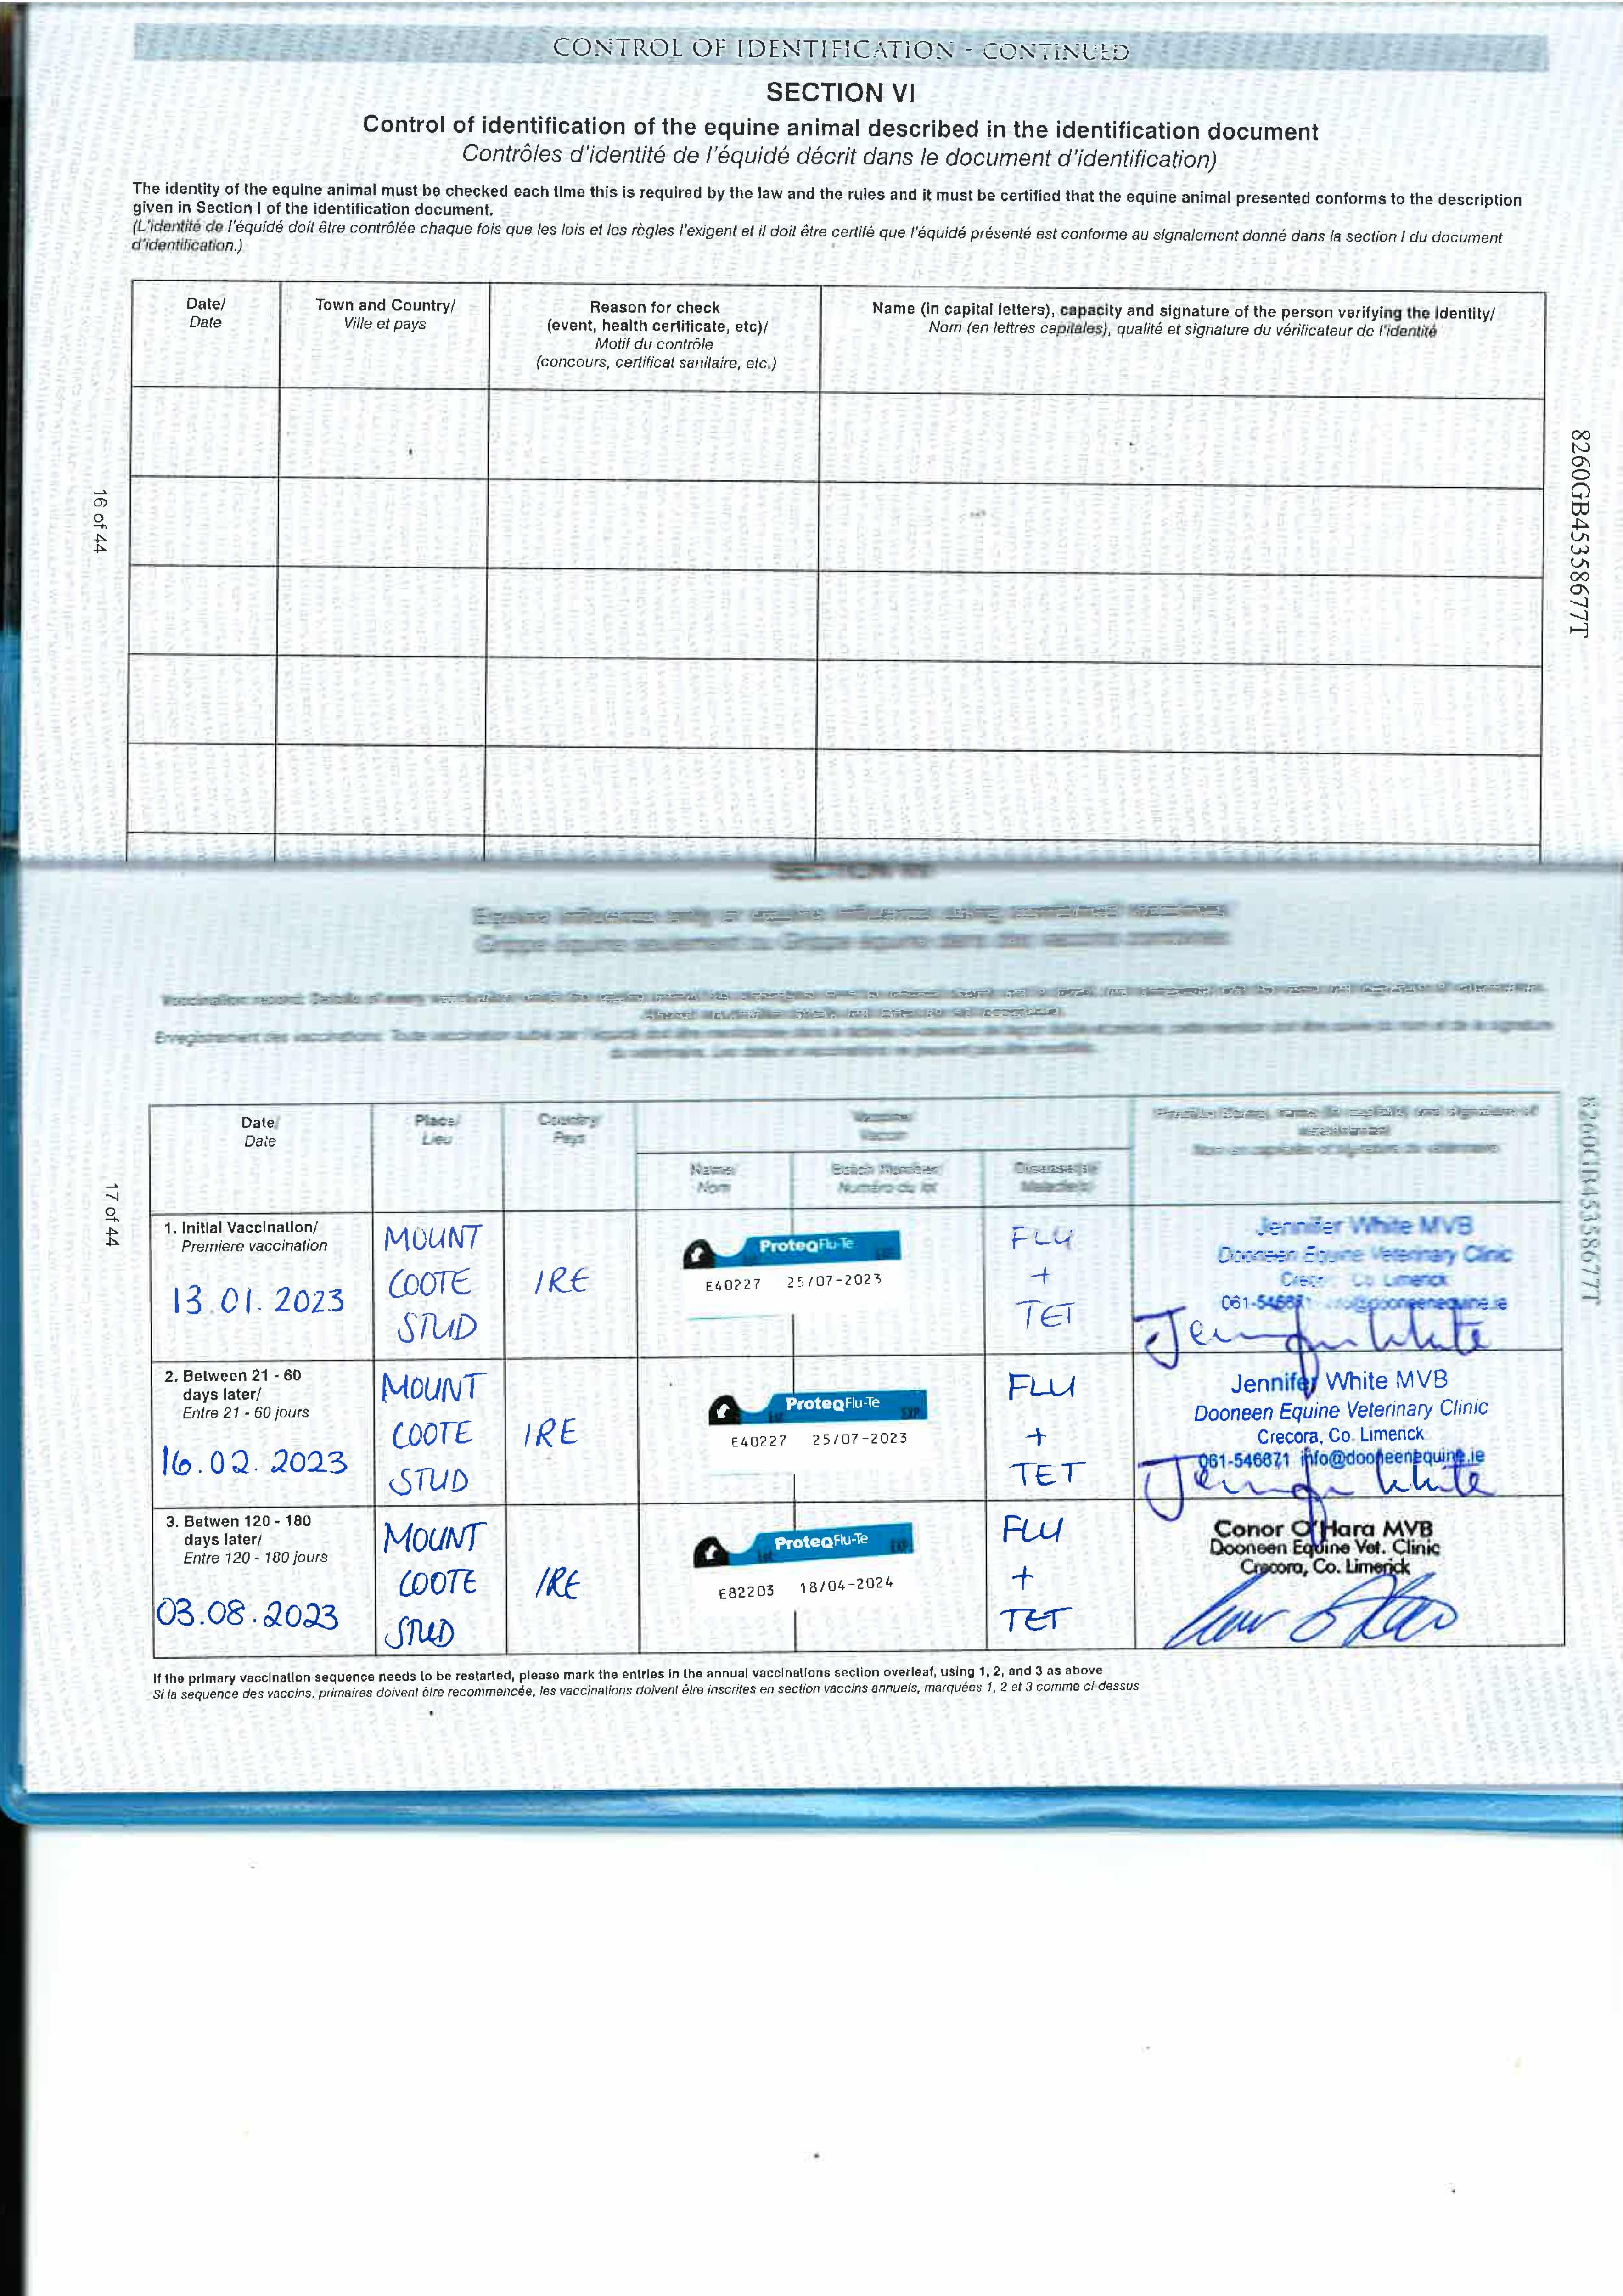 CONTROL OF IDENTIFICATION - CONTINUED
SECTION VI
Control of identification of the equine animal described in the identification document
Contrôles d'identité de l'équidé décrit dans le document d'identification)
The identity of the equine animal must be checked each time this is required by the law and the rules and it must be certified that the equine animal presented conforms to the description
given in Section I of the identification document.
(L'identité de l'équidé doit être contrôlée chaque fois que les lois et les règles l'exigent et il doit être certifé que l'équidé présenté est conforme au signalement donné dans la section I du document
d'identification.)
Date/
Date
Town and Country/
Ville et pays
Reason for check
(event, health certificate, etc)/
Motif du contrôle
(concours, certificat sanitaire, etc.)
Name (in capital letters), capacity and signature of the person verifying the identity/
Nom (en lettres capitales), qualité et signature du vérificateur de l'identité
16 of 44
8260GB45358677T
Equine influenza only or equine influenza using combined vaccines
Grippe équine seulement ou Grippe équine dans des vaccins combinés
17 of 44
8260GB45358677T
Date/
Date
Place/
Lieu
Country/
Pays
Vaccine/
Vaccin
Name/
Nom
Batch Number/
Numéro du lot
Disease(s)/
Maladie(s)
1. Initial Vaccination/
Premiere vaccination
13.01.2023
MOUNT
COOTE
STUD
IRE
ProteqFlu-Te
E40227 25/07-2023
FLU
+
TET
Jennifer White MVB
Dooneen Equine Veterinary Clinic
Co Limerick
Jennifer White
2. Between 21 - 60
days later/
Entre 21 - 60 jours
16.02.2023
MOUNT
COOTE
STUD
IRE
ProteqFlu-Te
EXP
E40227 25/07-2023
FLU
+
TET
Jennifer White MVB
Dooneen Equine Veterinary Clinic
Crecora, Co. Limerick
061-546871 info@dooneenequine.ie
Jennifer White
3. Betwen 120 - 180
days later/
Entre 120 - 180 jours
03.08.2023
MOUNT
COOTE
STUD
IRE
ProteqFlu-Te
E82203 18/04-2024
FLU
+
TET
Conor O'Hara MVB
Dooneen Equine Vet. Clinic
Crecora, Co. Limerick
If the primary vaccination sequence needs to be restarted, please mark the entries in the annual vaccinations section overleaf, using 1, 2, and 3 as above
Si la sequence des vaccins, primaires doivent être recommencée, les vaccinations doivent être inscrites en section vaccins annuels, marquées 1, 2 et 3 comme ci-dessus